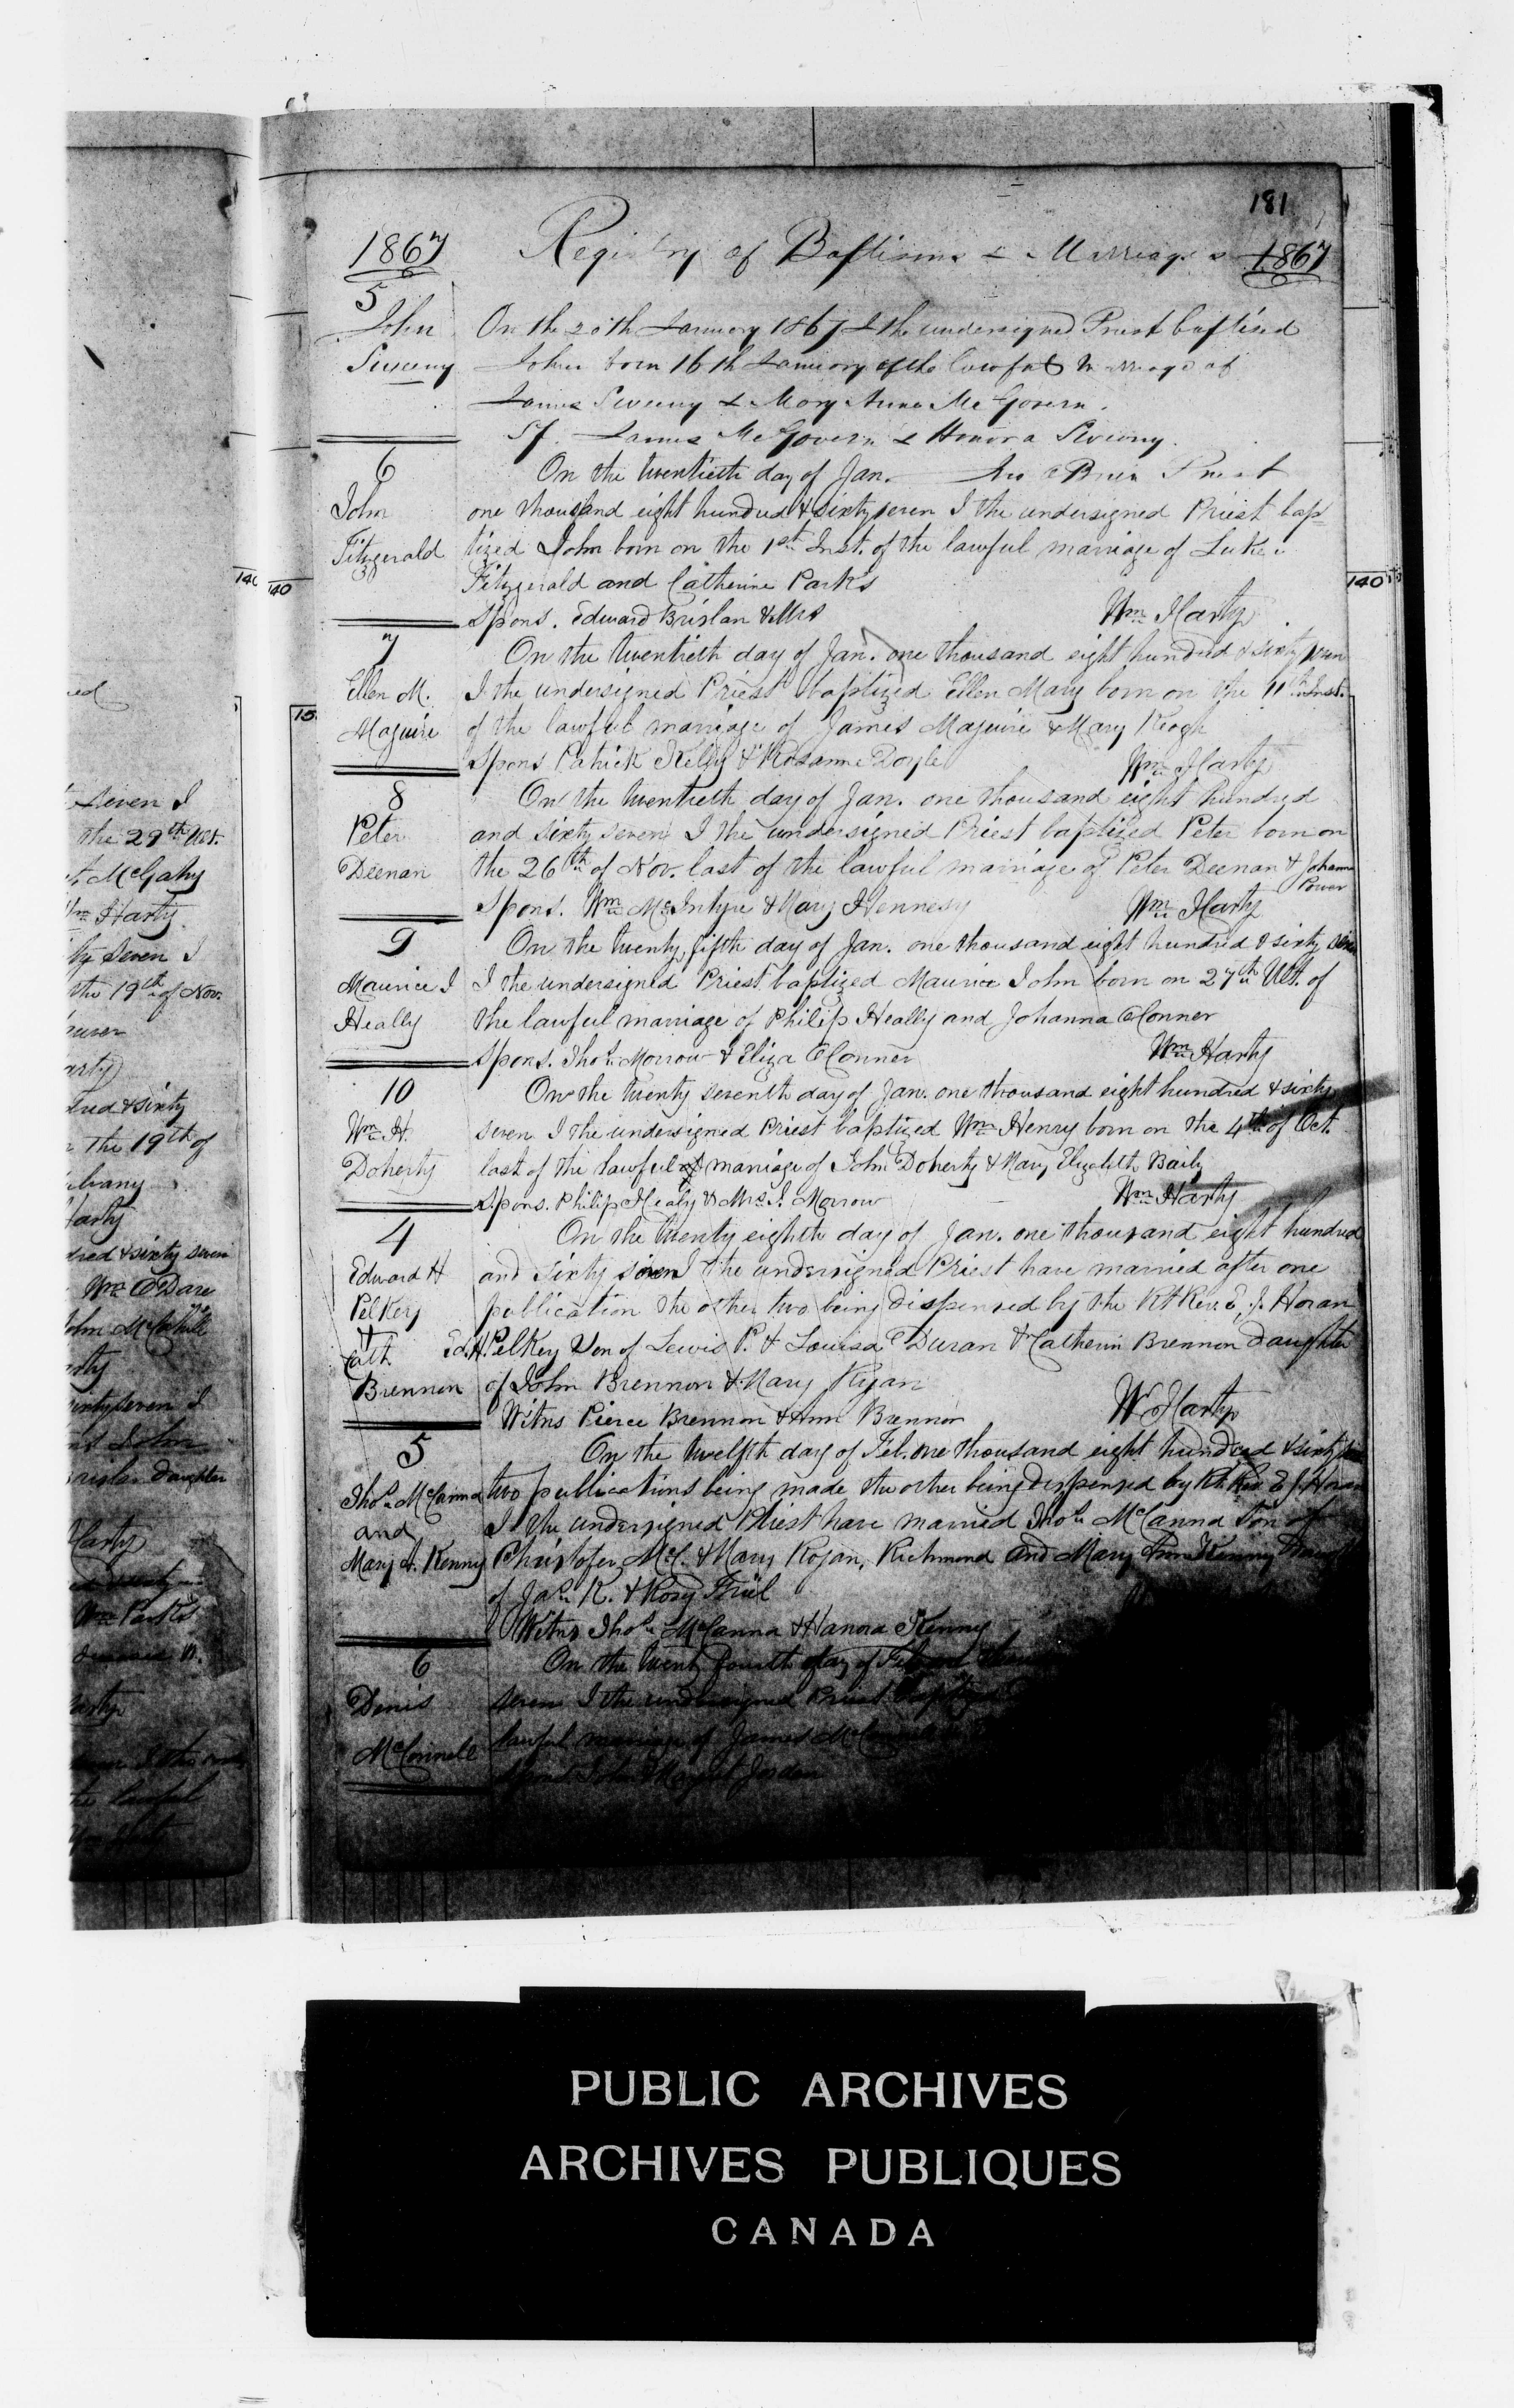 seven I
the 29th Ult.
McGahy
Wm Harty
seven I
the 19th of Nov.
& sixty
the 19th of
Harty
& sixty seven
Wm O'Dare
John McCahill
seven I
John
daughter
Harty
Wm Parks
lawful
140
181
1867 Registry of Baptisms & Marriages 1867
5
John
Sweeny
On the 20th January 1867 I the undersigned Priest baptised
John born 16th January of the lawful marriage of
James Sweeny & Mary Anne McGovern.
Sp. James McGovern & Honora Sweeny.
Priest
6
John
Fitzgerald
On the twentieth day of Jan.
one thousand eight hundred & sixty seven I the undersigned Priest bap
tized John born on the 1st Inst. of the lawful marriage of Luke
Fitzgerald and Catherine Parks
Spons. Edward Brislan & Mrs
Wm Harty
140
140
15
7
Ellen M.
Maguire
On the twentieth day of Jan. one thousand eight hundred & sixty seven
I the undersigned Priest baptized Ellen Mary born on the 11th Inst.
of the lawful marriage of James Maguire & Mary Keogh
Spons Patrick Kelly & Rosanne Doyle
Wm Harty
8
Peter
Deenan
On the twentieth day of Jan. one thousand eight hundred
and sixty seven I the undersigned Priest baptized Peter born on
the 26th of Nov. last of the lawful marriage of Peter Deenan & Johanna
Power
Spons. Wm McIntyre & Mary Hennesy
Wm Harty
9
Maurice J
Heally
On the twenty fifth day of Jan. one thousand eight hundred & sixty seven
I the undersigned Priest baptized Maurice John born on 27th Ult. of
the lawful marriage of Philip Heally and Johanna O'Conner
Spons. Thos. Morrow & Eliza O'Conner
Wm Harty
10
Wm H.
Doherty
On the twenty seventh day of Jan. one thousand eight hundred & sixty
seven I the undersigned Priest baptized Wm Henry born on the 4th of Oct.
last of the lawful marriage of John Doherty & Mary Elizabeth Baily
Spons. Philip Healy & Mrs J. Morrow
Wm Harty
4
Edward H
Pelkey
+
Cath.
Brennon
On the twenty eighth day of Jan. one thousand eight hundred
and sixty seven I the undersigned Priest have married after one
publication the other two being dispensed by the Rt Rev. E. J. Horan
Ed. H. Pelkey Son of Lewis P. & Louisa Duran & Catherin Brennon daughter
of John Brennon & Mary Ryan
Witns Pierce Brennon & Ann Brennon
W Harty
5
Thos. McCanna
and
Mary A. Kenny
On the twelfth day of Feb. one thousand eight hundred & sixty
two publications being made the other being dispensed by Rt. Rev. E J. Horan
I the undersigned Priest have married Thos. McCanna Son of
Christofer McC. & Mary Rogan, Richmond and Mary Ann Kenny
of Jas. K. & Rosy Friel
Witns Thos. McCanna & Hanora Kenny
6
Denis
McConnell
On the twenty fourth day of
seven I the undersigned Priest baptized
lawful marriage of James McConnell
Spons John & Margret Jordan
PUBLIC ARCHIVES
ARCHIVES PUBLIQUES
CANADA